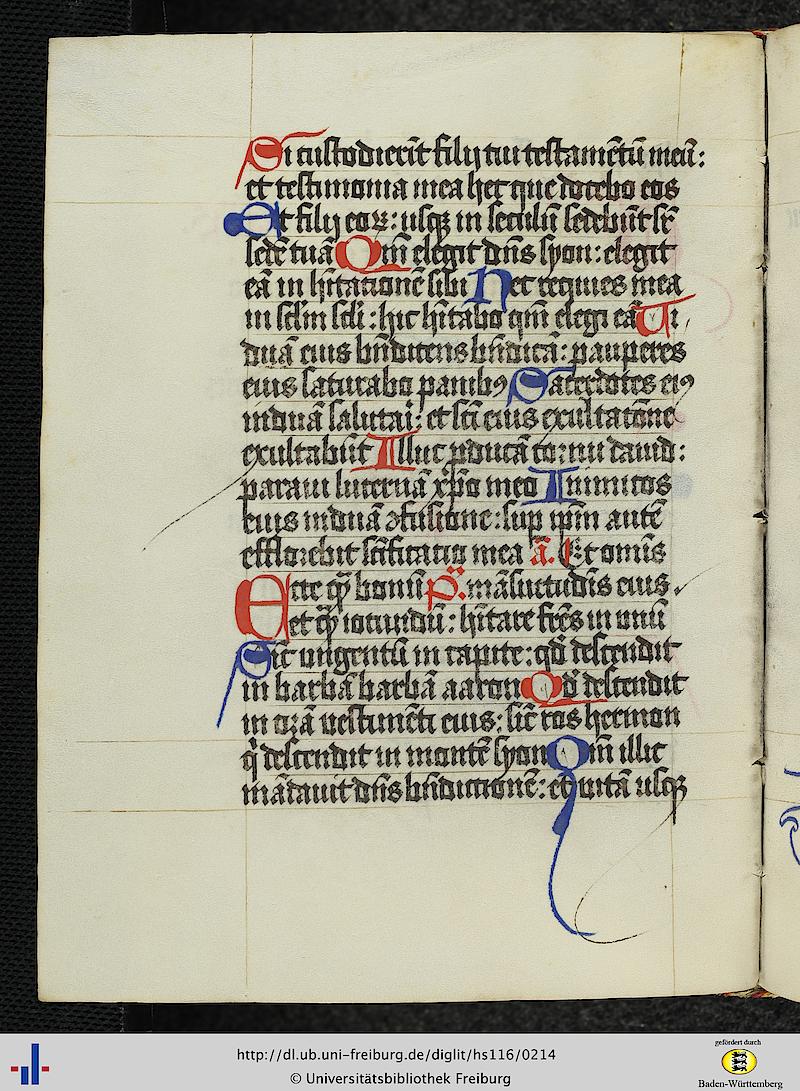 Si custodierīt filij tui testamētū meū:
et testimonia mea hec que docebo eos
Et filij eoꝝ: usqꝫ in seculū sedebūt sr̄
sedē tuā Qm̄ elegit dn̄s syon: elegit
eā in hītationē sibi Nec requies mea
in sclm̄ scli: hic hītabo qm̄ elegi eā Vi
duā eius bn̄dicens bn̄dicā: pauperes
eius saturabo panibꝰ Sacerdotes eiꝰ
induā salutai: et sc̄i eius exultatōne
exultabūt Illuc ꝓducā cornu dauid:
paraui lucernā xp̄o meo Inimicos
eius induā ꝯfusione: sup ip̄m autē
efflorebit sc̄ificatio mea ā. Et om̄is
Ecce qͣ bonū p̄. māsuetudīs eius.
et qͣ iocundū: hītare fr̄es in unū
Sic̄ ungentū in capite: qd̄ descendit
in barbā barbā aaron Qd̄ descendit
in orā uestimēti eius: sic̄ ros hermon
qͥ descendit in montē syon Qm̄ illic
mādauit dn̄s bn̄dictionē: et uitā usqꝫ
http://dl.ub.uni-freiburg.de/diglit/hs116/0214
© Universitätsbibliothek Freiburg
gefördert durch
Baden-Württemberg